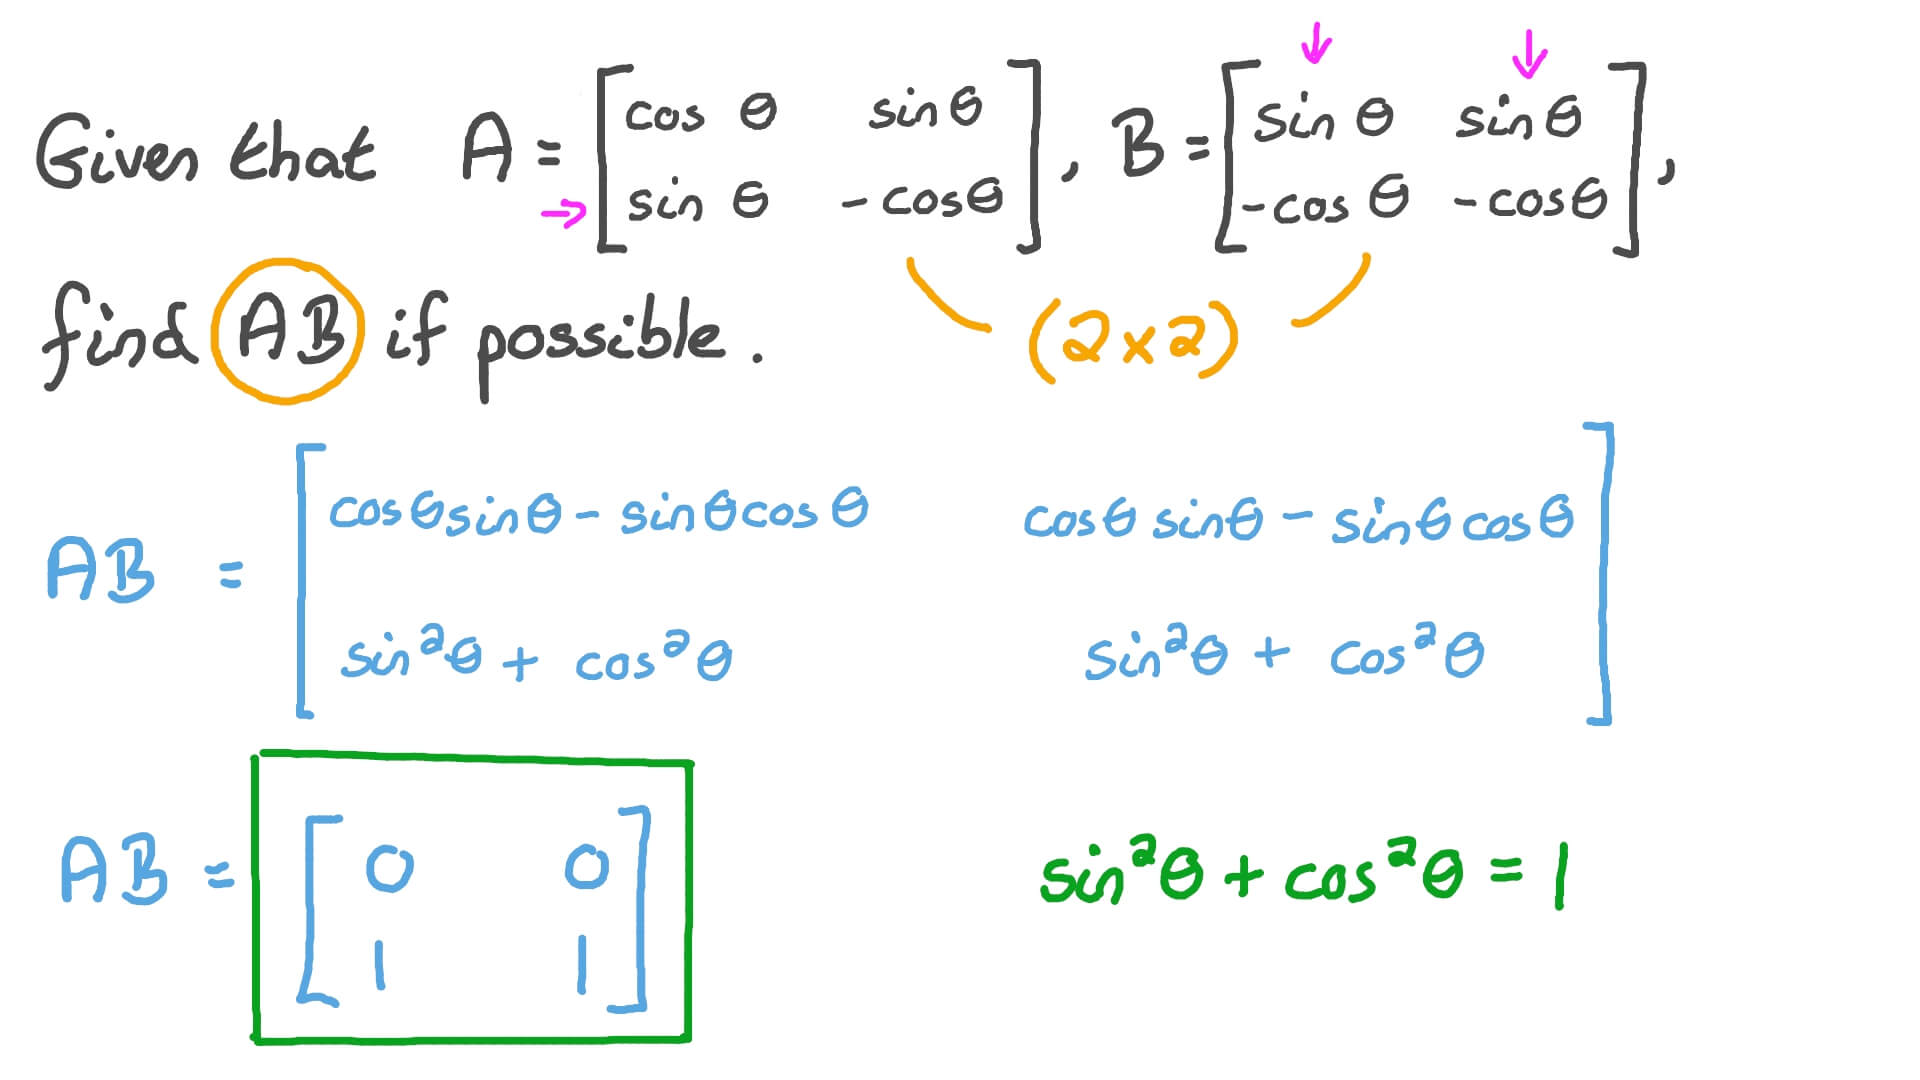 Given that A = [cos θ sin θ
sin θ -cos θ], B = [sin θ sin θ
-cos θ -cos θ],
find AB if possible.
(2×2)
AB = [cos θ sin θ - sin θ cos θ cos θ sin θ - sin θ cos θ
sin²θ + cos²θ sin²θ + cos²θ]
AB = [0 0
1 1]
sin²θ + cos²θ = 1